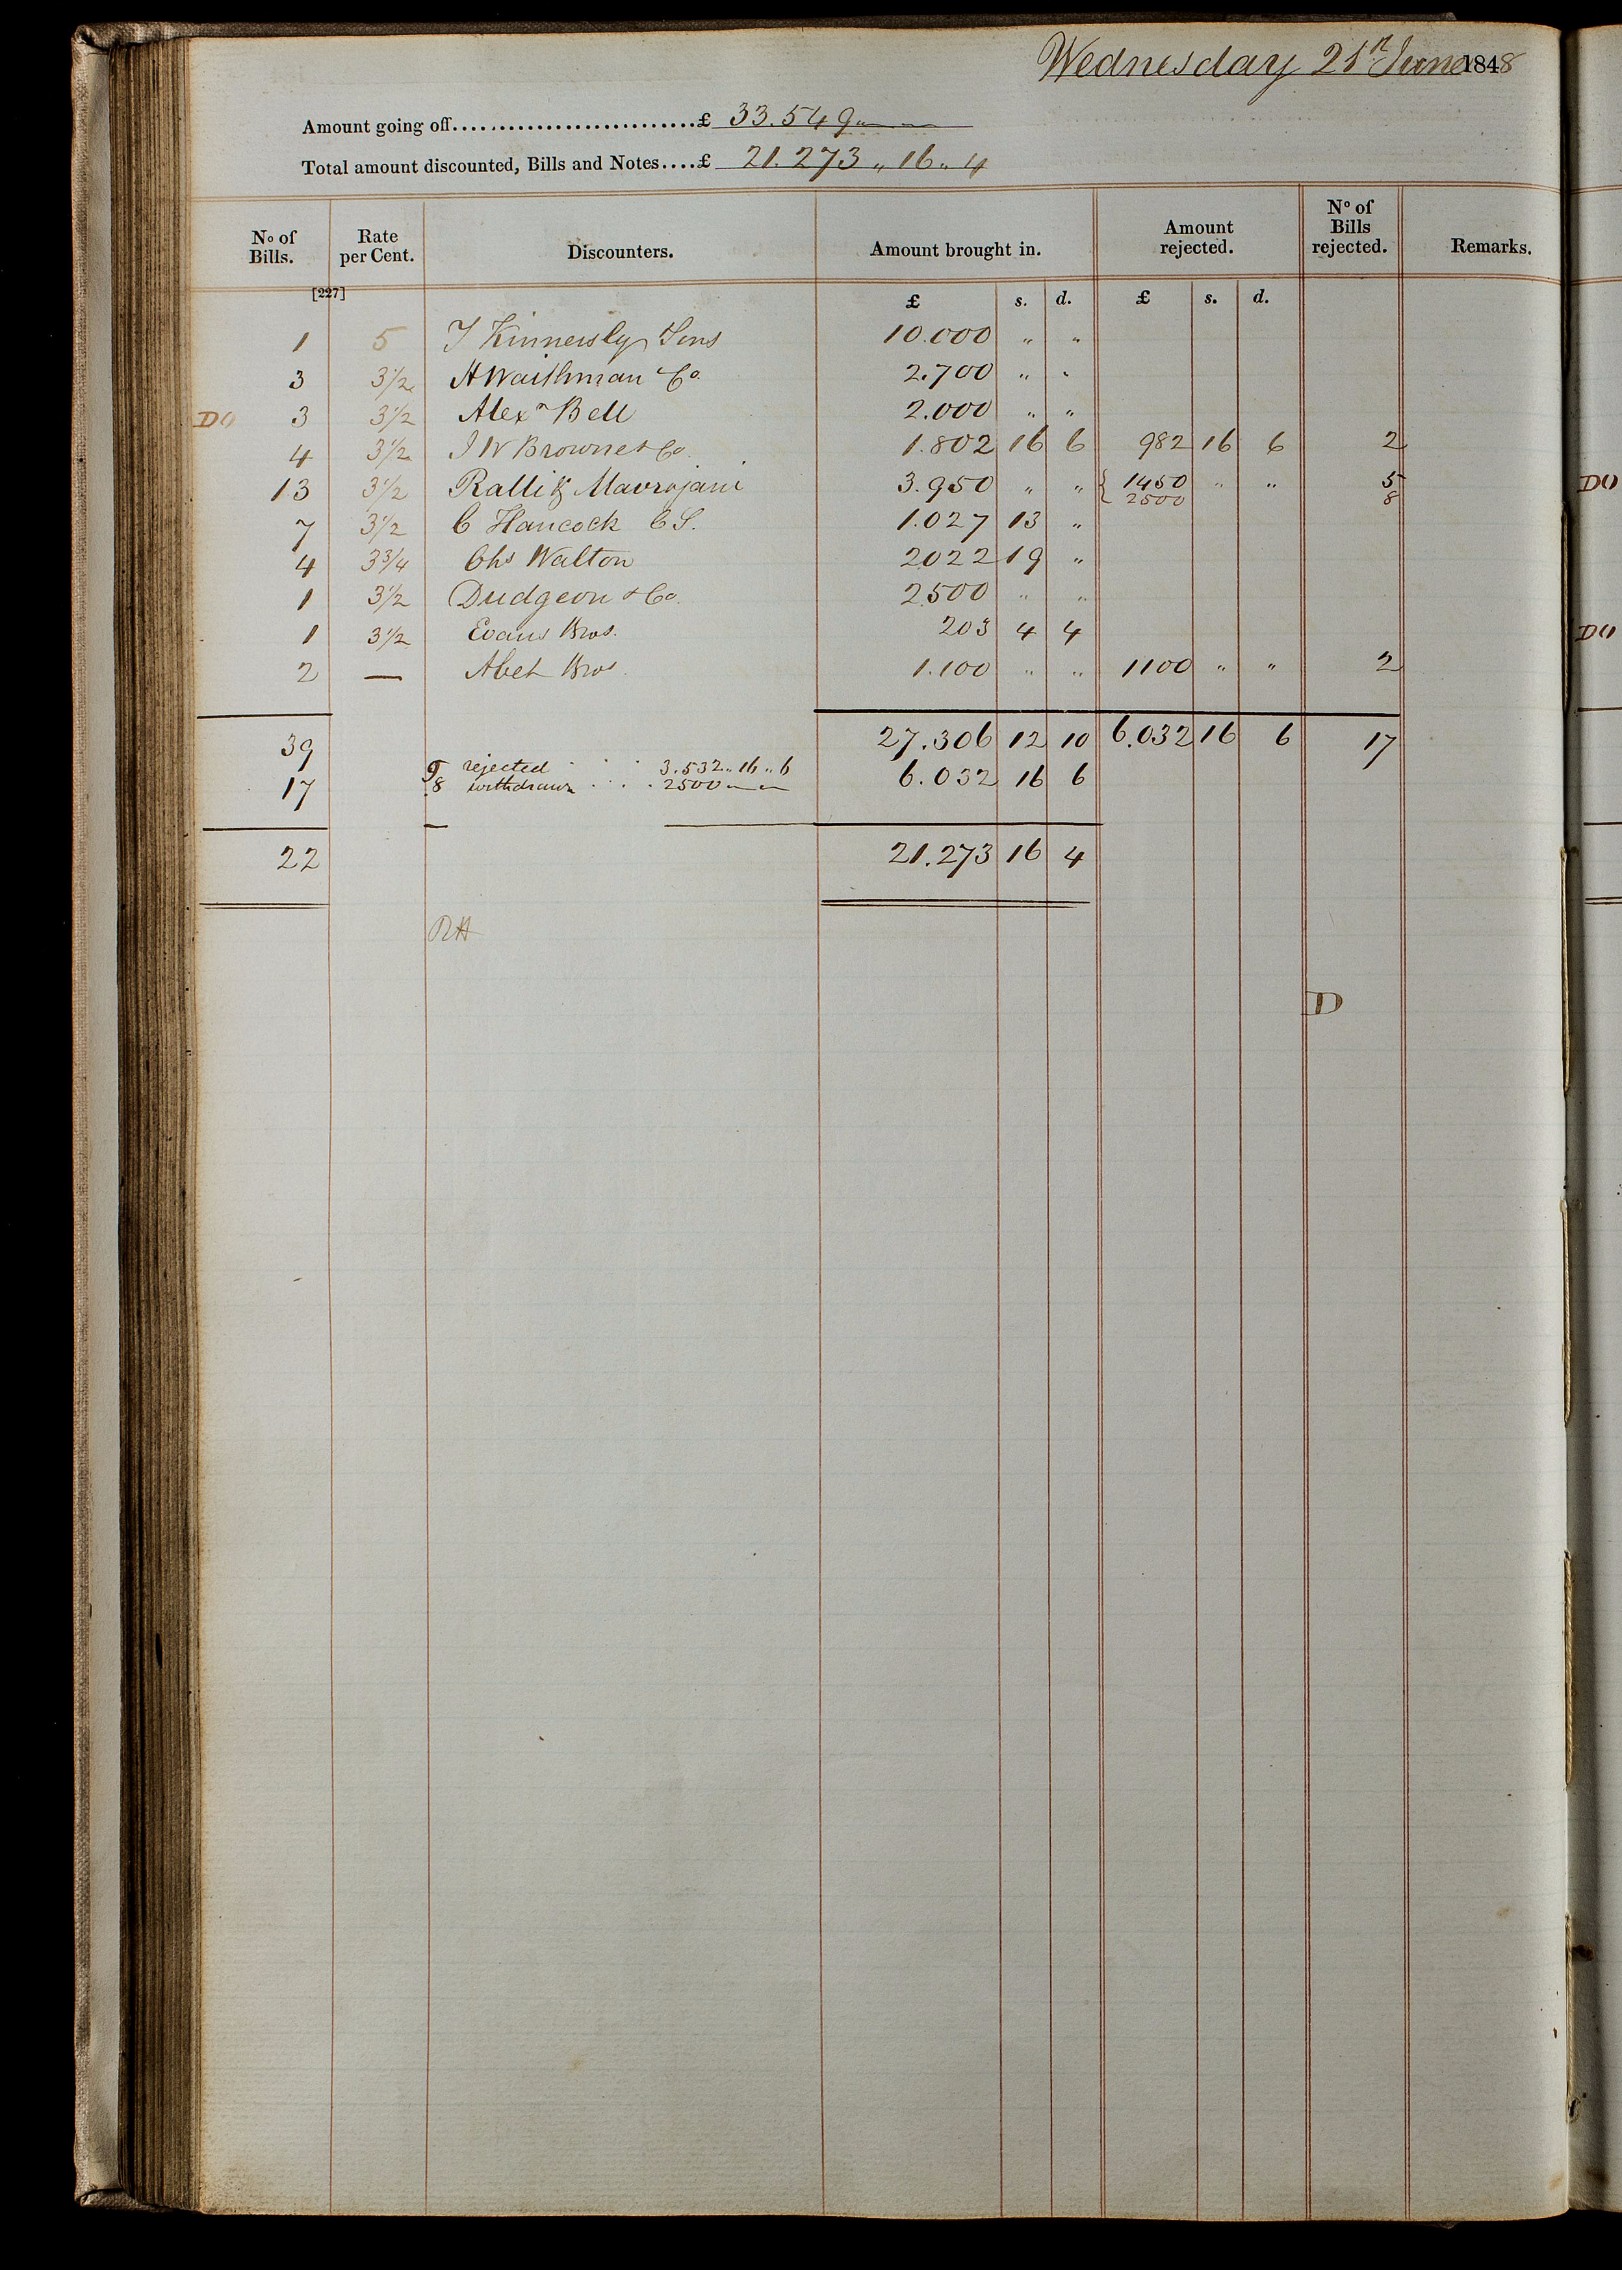 Wednesday 21st June 1848
Amount going off...........................£ 33.549 " "
Total amount discounted, Bills and Notes....£ 21.273 " 16 " 4
No of Bills. Rate per Cent. Discounters. Amount brought in. Amount rejected. No of Bills rejected. Remarks.
[227] £ s. d. £ s. d.
1 5 T Kinnersly & Sons 10.000 " "
3 3 1/2 A Waithman & Co. 2.700 " "
DO 3 3 1/2 Alexr Bell 2.000 " "
4 3 1/2 J W Browne & Co. 1.802 16 6 982 16 6 2
13 3 1/2 Ralli & Mavrojani 3.950 " " { 1450 " " 5
2500 8
DO
7 3 1/2 C Hancock C S. 1.027 13 "
4 3 3/4 Chs Walton 2022 19 "
1 3 1/2 Dudgeon & Co. 2500 " "
1 3 1/2 Evans Bros. 203 4 4
DO
2 — Bros 1.100 " " 1100 " " 2
39 27.306 12 10 6.032 16 6 17
9 rejected . . . 3.532 " 16 " 6
17 6.032 16 6
8 withdrawn . . . 2500 " "
22 21.273 16 4
RH
D